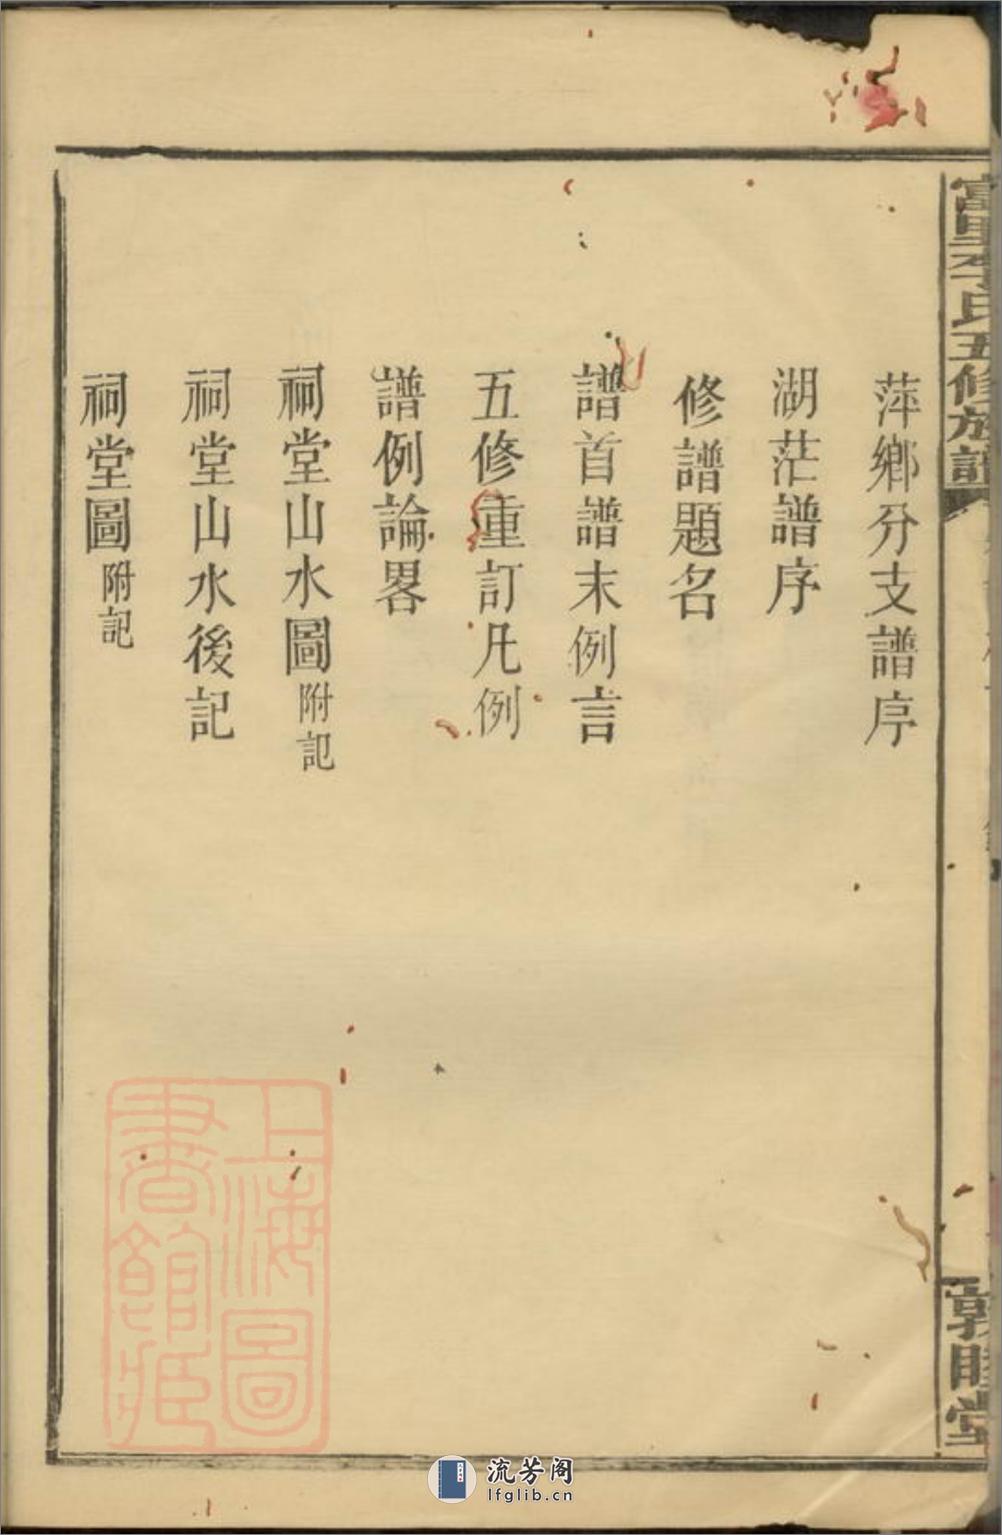 富里李氏五修族譜
敦睦堂
萍鄉分支譜序
湖茫譜序
修譜題名
譜首譜末例言
五修重訂凡例
譜例論畧
祠堂山水圖附記
祠堂山水後記
祠堂圖附記
上海圖書館藏
流芳阁
lfglib.cn